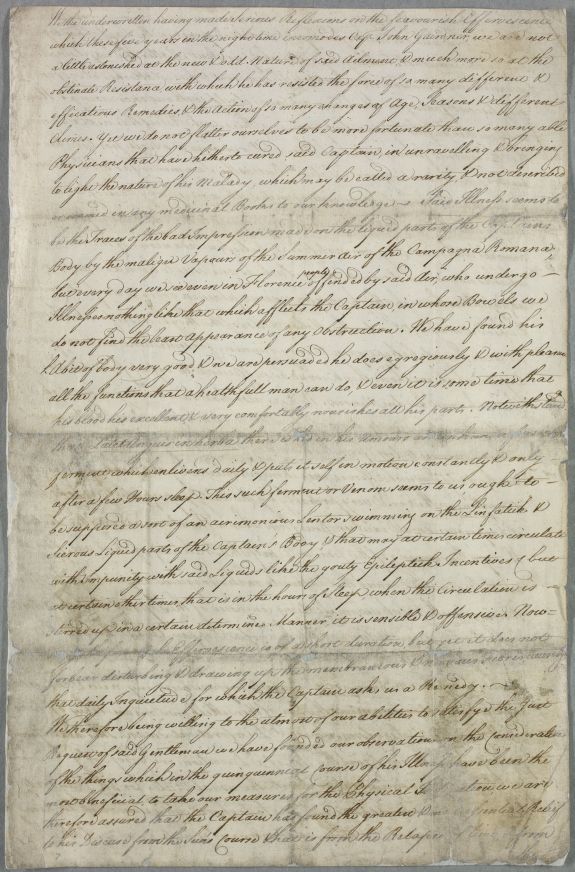 We the underwritten having made Serious Reflexions on the feavourish Effervescence
which these five years in the night time incommodes Capt. John Gairdner, we are not
a little astonished at the new & odd Nature of said Ailment & much more so at the
obstinate Resistance with which he has resisted the force of so many different &
efficatious Remedies, & the Action of so many changes of Age, Seasons & different
Climes. Yet we do not flatter ourselves to be more fortunate than so many able
Physicians that have hitherto cured said Captain, in unravelling & bringing
to light the nature of his Malady, which may be called a rarity, & not described
or named in any medicinal Books to our knowledge. Said Illness seems to
be the Traces of the bad Impression made on the liquid parts of the Captains
Body by the malign Vapours of the Summer air of the Campagna Romana
but every day we see even in Florence persons offended by said air, who undergo
Illnesses nothing like that which afflicts the Captain, in whose Bowels we
do not find the least Appearance of any Obstruction. We have found his
habit of body very good & we are persuaded he does egregiously & with pleasure
all the functions that a healthfull man can do, & even it is some time that
his blood his excellent & very comfortably nourishes all his parts. Notwithstand
there is in his
ferment which enlivens daily & puts it self in motion constantly & only
after a few Hours sleep. This such ferment or Venom seems to us ought to
be supposed a sort of an acrimonious Lentor swimming on the Linfatik &
Sierous Liquid parts of the Captain's Body & that may at certain times circulate
with impunity with said Liquids like the gouty Epileptick Incentives, but
at certain other times, that is in the hours of Sleep when the Circulation is
stirred up in a certain determine Manner, it is sensible & offensive. Now
Effervescence is of a short duration, but yet it does not
forbear disturbing & drawing up the membranous
that daily Inquietude for which the Captain asks us a Remedy.
We therefore being willing to the utmost of our abilities to satisfye the Just
Request of said Gentleman we have founded our observation on the consideration
of the things which in the quinquennial course of his Illness have been the
most beneficial, to take our measures for the Physical We are
therefore assured that the Captain has found the greatest & Relief
to his Disease from the Suns Course that is from the